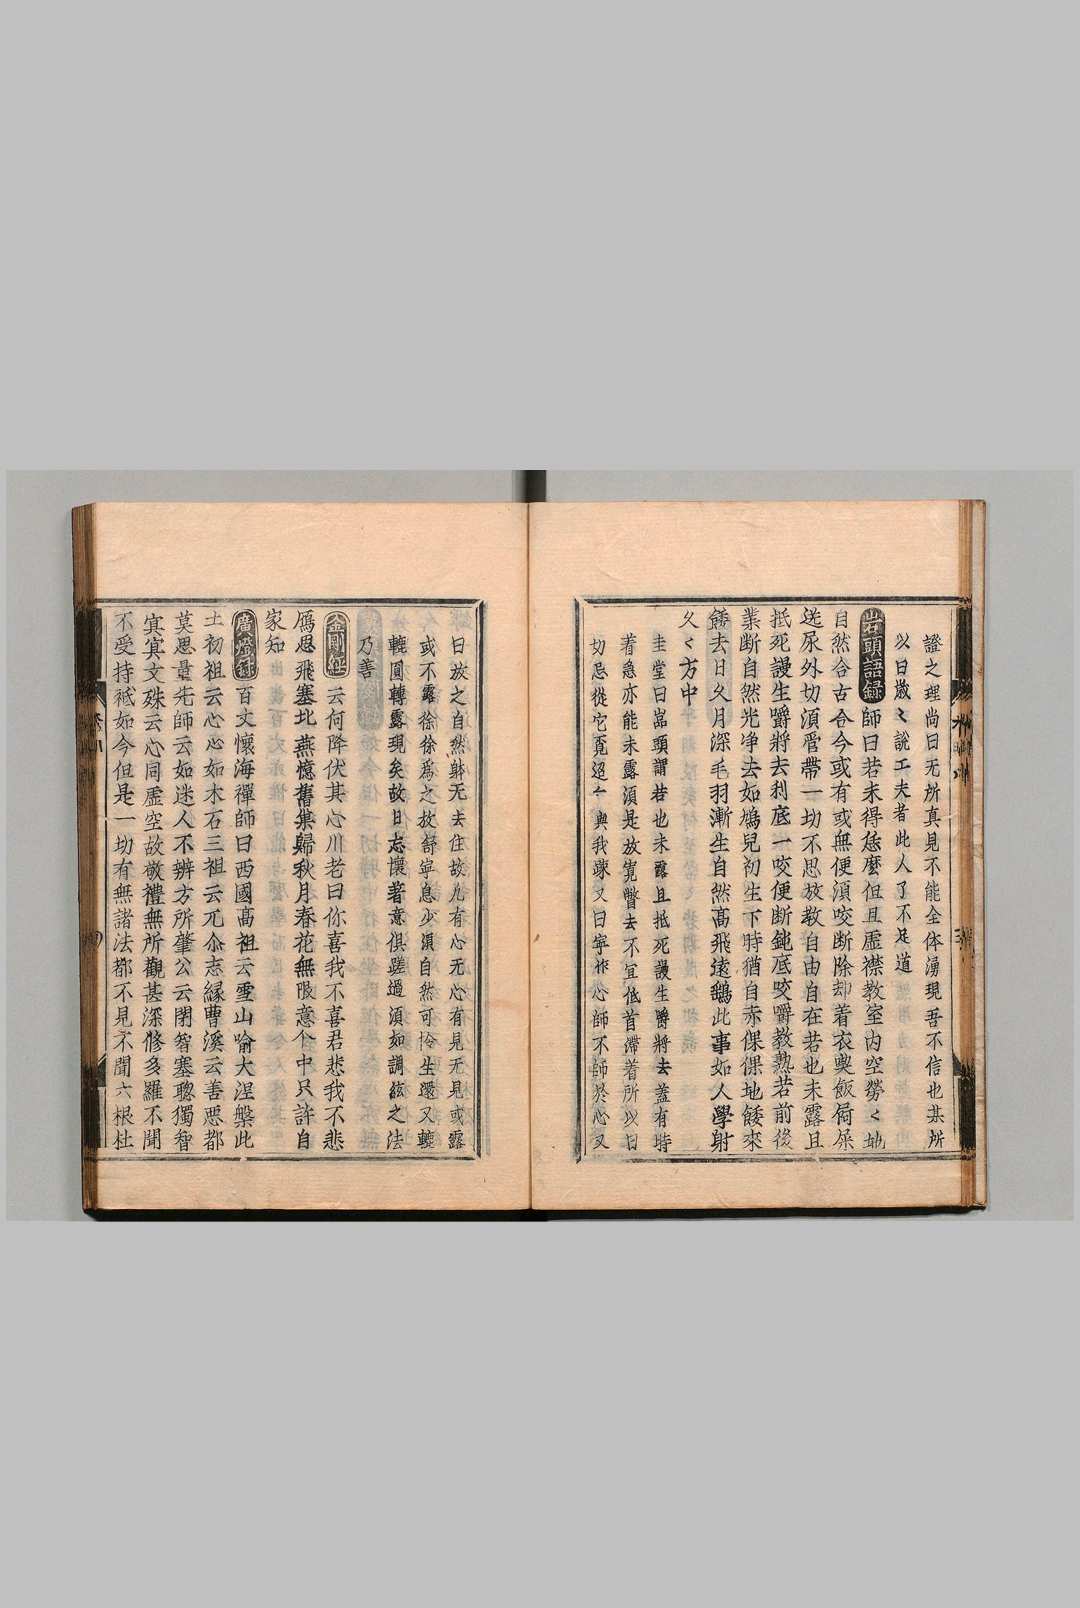 證之理尚曰无所真見不能全体湧現吾不信也某所
以曰嵗〻說工夫者此人了不足道
岩頭語録 師曰若未得恁麽但且虛襟教室內空勞〻地
自然合古合今或有或無便湏咬斷除却着衣喫飯屙屎
送尿外切湏罷帶一切不思放教自由自在若也未露且
抵死謾生嚼將去利底一咬便斷鈍底咬嚼教熟若前後
業斷自然光净去如鴆兒初生下時猶自赤倮倮地餧來
餧去日久月深毛羽漸生自然高飛遠鵝此事如人學射
久〻方中
圭堂曰嵓頭謂若也未露且抵死謾生嚼將去蓋有時
着急亦能未露湏是放寛瞥去不宜低首滯着所以曰
切忌從它覔迢〻與我踈又曰寧作心師不師於心又
曰放之自然躰无去住故凢有心无心有見无見或露
或不露徐徐爲之放舒寧息少湏自然可怜生還又轆
轆圓轉露現矣故曰忘懷著意俱蹉過湏如調絃之法
乃善
金剛經 云何降伏其心川老曰你喜我不喜君悲我不悲
鴈思飛塞北燕憶舊巢歸秋月春花無限意个中只許自
家知
廣燈録 百丈懷海禪師曰西國高祖云雪山喻大涅槃此
土初祖云心心如木石三祖云兀尒忘緣曹溪云善惡都
莫思量先師云如迷人不辨方所肇公云閉智塞聰獨智
寘寘文殊云心同虛空故敬禮無所觀甚深修多羅不聞
不受持祗如今但是一切有無諸法都不見不聞六根杜